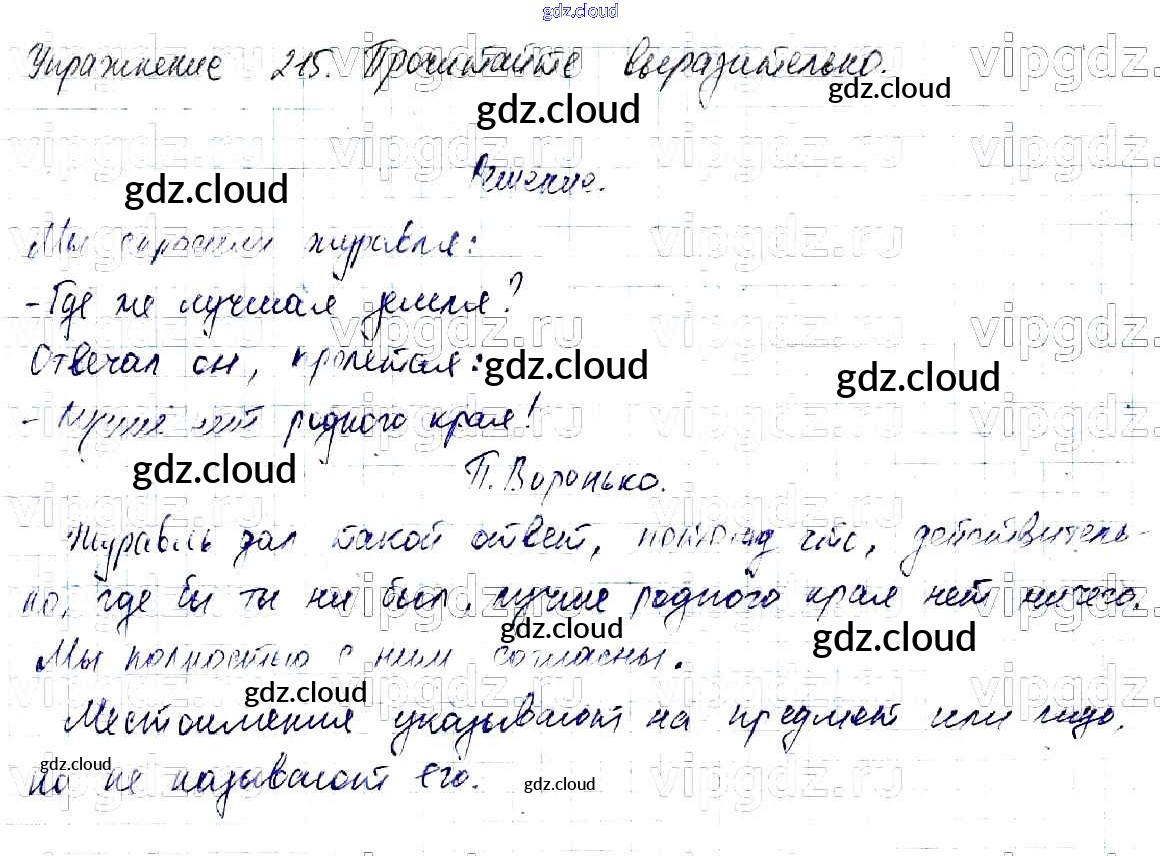 gdz.cloud
Упражнение 215. Прочитайте выразительно.
Решение.
Мы спросили журавля:
- Где же лучшая земля?
Отвечал он, пролетая:
- Лучше нет родного края!
П. Воронько.
Журавль дал такой ответ, потому что, действитель-
но, где бы ты ни был, лучше родного края нет ничего.
Мы полностью с ним согласны.
Местоимения указывают на предмет или лицо,
но не называют его.